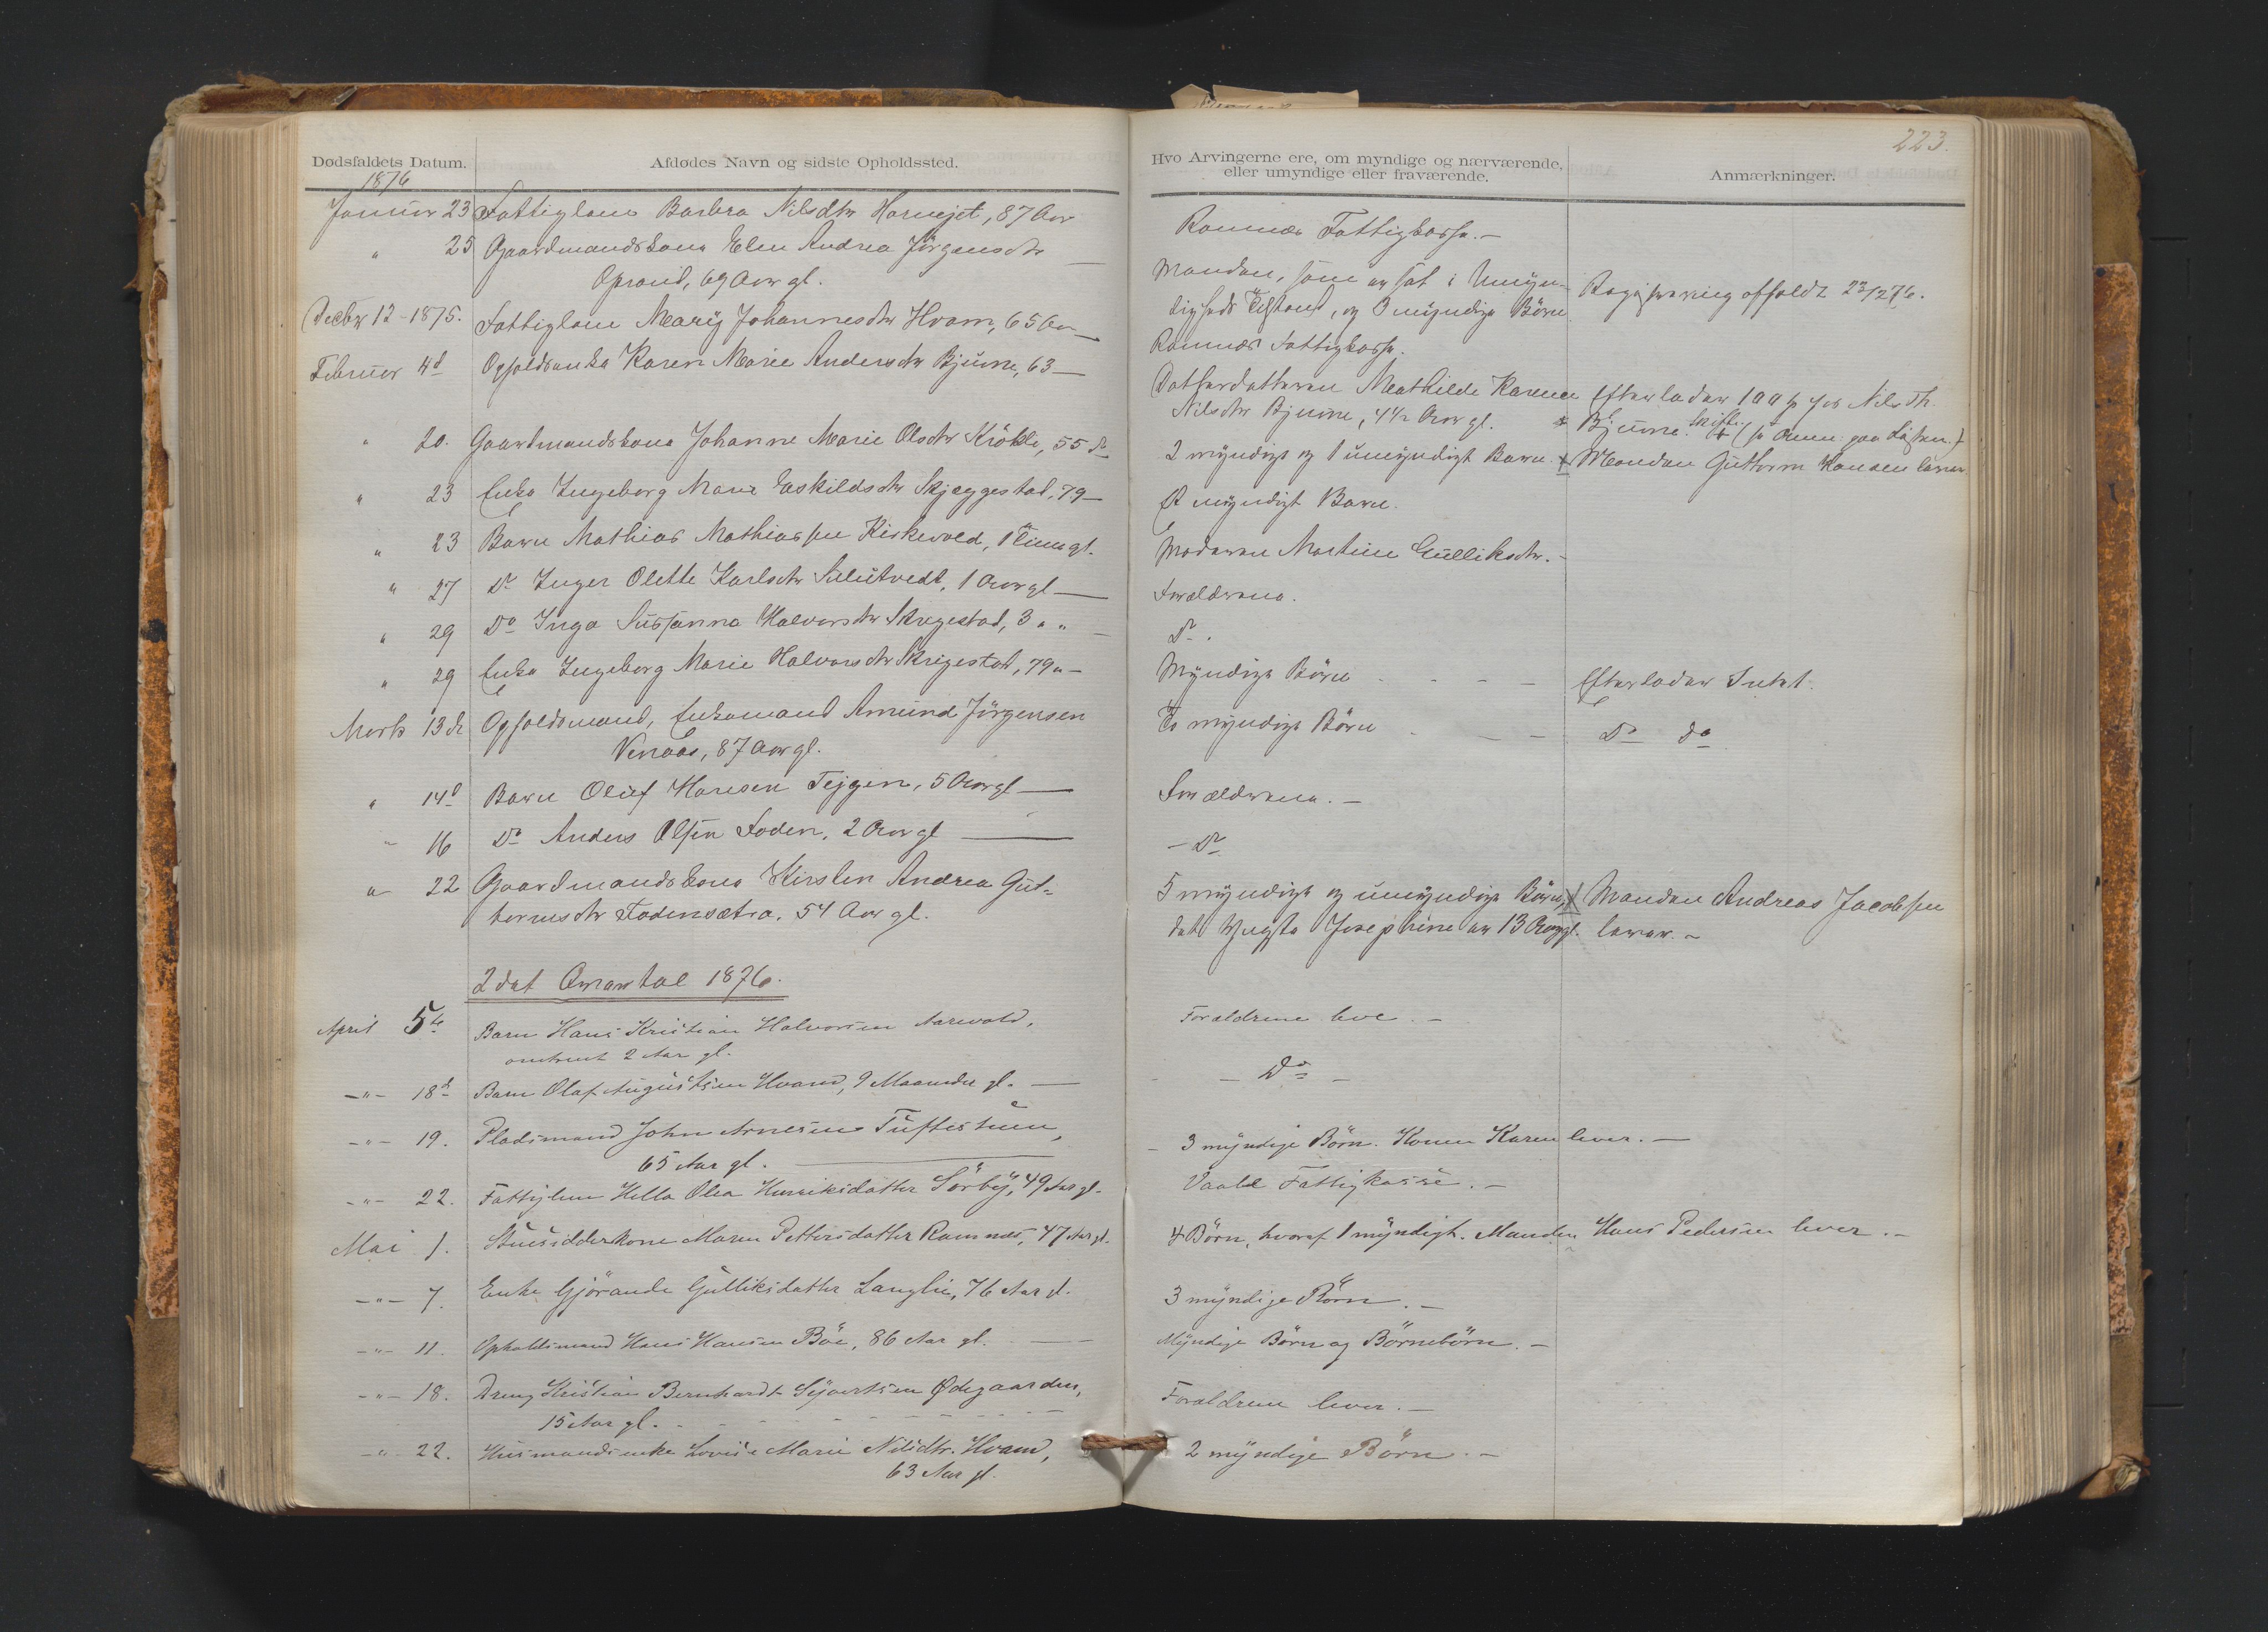 223.
Dødsfaldets Datum.
Afdødes Navn og sidste Opholdssted.
1876
Januar 23 Fattiglem Barbra Nilsdtr Hornejet, 87 Aar
" 25 Gaardmandskone Elen Andrea Jørgensdtr
Oprand, 69 Aar gl.
Decbr 12 - 1875. Fattiglem Mary Johannesdtr Hvam, 65 Aar
Februar 4d Opholdsenke Karen Marie Andersdtr Bjune, 63 —
" 20. Gaardmandskone Johanne Marie Olsdtr Krökli, 55 Do
" 23 Enke Ingeborg Marie Eskildsdtr Skjæggestad, 79 —
" 23 Barn Mathias Mathiassen Kirkevold, 1 Time gl.
" 27 Do Inger Olette Karlsdtr Sulutvedt, 1 Aar gl —
" 29 Do Inga Susanna Halvorsdtr Skregestad, 3 " " —
" 29 Enke Ingeborg Marie Halvorsdtr Skrigestad, 79 " —
Marts 13de Opholdsmand, Enkemand Amund Jörgensen
Venaas, 87 Aar gl.
" 14d Barn Oluf Hansen Tejgen, 5 Aar gl —
" 16 Do Anders Olsen Foden, 2 Aar gl —
" 22 Gaardmandskone Kirsten Andrea Gut-
hormsdtr Fodensætra, 54 Aar gl.
2det Qvartal 1876.
April 5te Barn Hans Kristian Halvorsen Aarvold,
omtrent 2 Aar gl.
-"- 18d Barn Olaf Augustsen Hvam, 9 Maaneder gl. —
-"- 19. Pladsmand John Arnesen Tuftestuen,
65 Aar gl. —
-"- 22. Fattiglem Hella Olea Henriksdatter Sörby, 49 Aar gl.
Mai 1. Stuesidderkone Maren Pettersdatter Ramnes, 47 Aar gl.
-"- 7. Enke Gjörande Gulliksdatter Langlie, 76 Aar gl.
-"- 11. Opholdsmand Hans Hansen Böe, 86 Aar gl. —
-"- 18. Dreng Kristian Bernhardt Syvertsen Ødegaarden,
15 Aar gl. -
-"- 22. Husmandsenke Lovise Marie Nilsdtr. Hvam,
63 Aar gl.
Hvo Arvingerne ere, om myndige og nærværende,
eller umyndige eller fraværende.
Anmærkninger.
Ramnæs Fattigkasse. —
Manden, som er sat i Umyn-
digheds Tilstand, og 3 myndige Børn
Registrering affoldt 23/2 76.
Ramnæs Fattigkasse.
Datterdatteren Mathilde Karena
Nilsdtr Bjune, 4 1/2 Aar gl.
Efterlader 100 hos Nils
Bjune. Skifte (se Anm. paa Listen.)
2 myndige og 1 umyndigt Barn.
Manden Guttorm Hansen lever
Et myndigt Barn.
Moderen Martine Gulliksdtr. —
Forældrene.
Do.
Myndige Börn - - -
Efterlader Intet.
To myndige Börn - - -
Do do
Forældrene. —
— Do
5 myndige og umyndige Börn,
det yngste Josephine er 13 Aar gl.
Manden Andreas Jacobsen
lever. —
Forældrene leve. —
- Do -
3 myndige Börn. Konen Karen lever. —
Vaale Fattigkasse. —
4 Börn, hvoraf 1 myndigt. Manden Hans Pedersen lever. —
3 myndige Börn. —
Myndige Börn og Börnebörn. —
Forældrene lever. —
2 myndige Börn. —